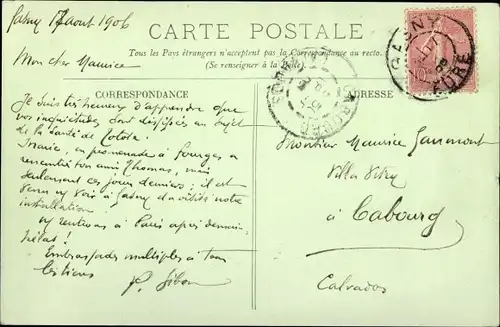 Gasny 17 Aout 1906
CARTE POSTALE
Tous les Pays étrangers n'acceptent pas la Correspondance au recto.
(Se renseigner à la Poste).
Mon cher Maurice
CORRESPONDANCE
Je suis très heureux d'apprendre que
vos inquiétudes sont dissipées au sujet
de la santé de Totote.
en promenade à Fourges a
rencontré ton ami Thomas, mais
seulement ces jours derniers; il est
venu ns voir à Gasny de notre
installation.
ns rentrons à Paris après demain.
hélas!
Embrassades multiples à tous
les tiens
ADRESSE
GASNY
EURE
CABOURG
Monsieur Maurice
Villa
à Cabourg
Calvados